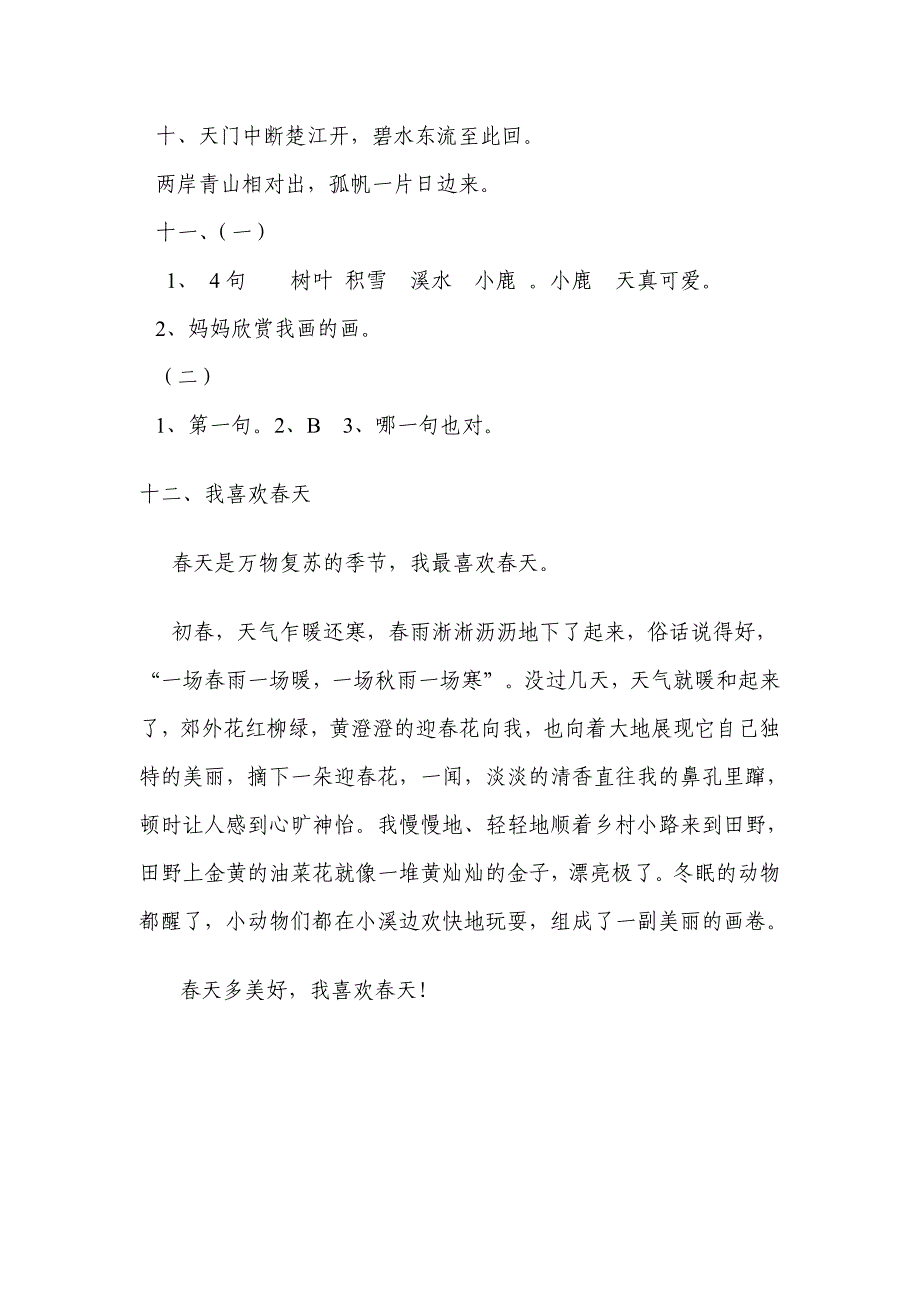 十、天门中断楚江开，碧水东流至此回。
两岸青山相对出，孤帆一片日边来。
十一、（一）
1、 4句 树叶 积雪 溪水 小鹿 。小鹿 天真可爱。
2、妈妈欣赏我画的画。
（二）
1、第一句。2、B 3、哪一句也对。
十二、我喜欢春天
春天是万物复苏的季节，我最喜欢春天。
初春，天气乍暖还寒，春雨淅淅沥沥地下了起来，俗话说得好，
“一场春雨一场暖，一场秋雨一场寒”。没过几天，天气就暖和起来
了，郊外花红柳绿，黄澄澄的迎春花向我，也向着大地展现它自己独
特的美丽，摘下一朵迎春花，一闻，淡淡的清香直往我的鼻孔里蹿，
顿时让人感到心旷神怡。我慢慢地、轻轻地顺着乡村小路来到田野，
田野上金黄的油菜花就像一堆黄灿灿的金子，漂亮极了。冬眠的动物
都醒了，小动物们都在小溪边欢快地玩耍，组成了一副美丽的画卷。
春天多美好，我喜欢春天！